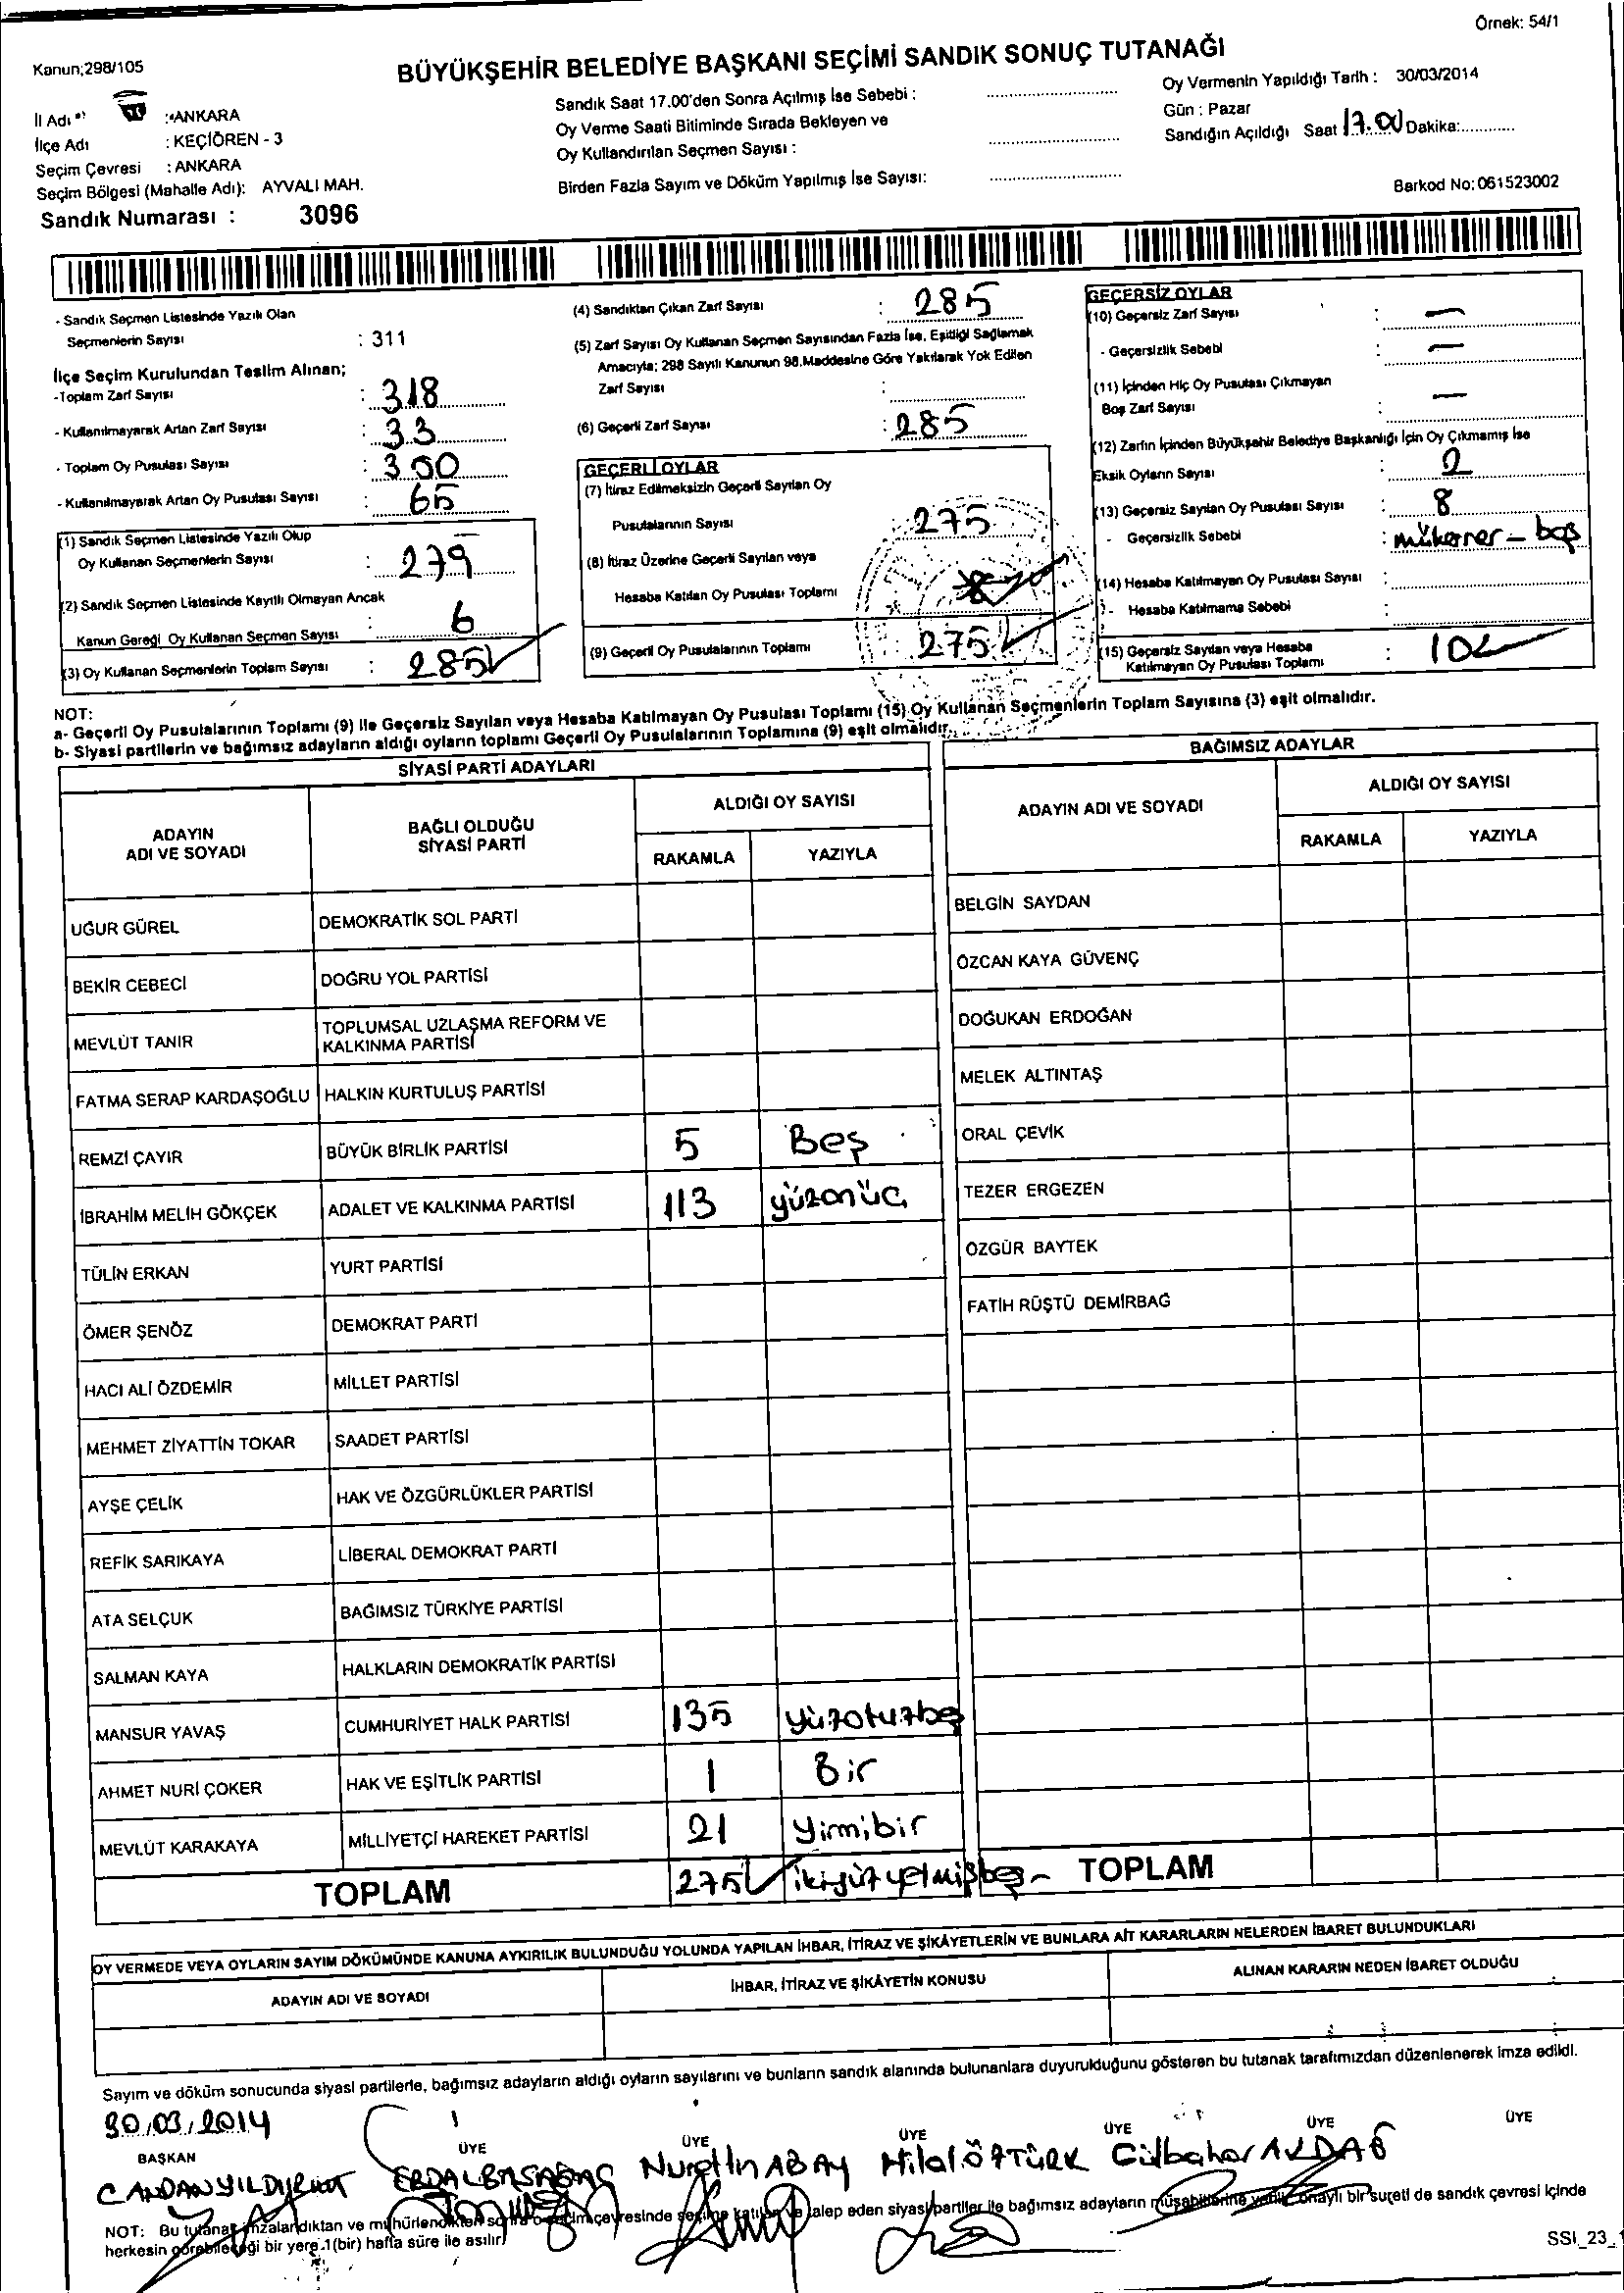 Örnek: 54/1
Kanun;298/105
BÜYÜKŞEHİR BELEDİYE BAŞKANI SEÇİMİ SANDIK SONUÇ TUTANAĞI
İl Adı :ANKARA
İlçe Adı : KEÇİÖREN - 3
Seçim Çevresi : ANKARA
Seçim Bölgesi (Mahalle Adı): AYVALI MAH.
Sandık Numarası : 3096
Sandık Saat 17.00'den Sonra Açılmış İse Sebebi :
Oy Verme Saati Bitiminde Sırada Bekleyen ve
Oy Kullandırılan Seçmen Sayısı :
Birden Fazla Sayım ve Döküm Yapılmış İse Sayısı:
Oy Vermenin Yapıldığı Tarih : 30/03/2014
Gün : Pazar
Sandığın Açıldığı Saat 17.00 Dakika:
Barkod No: 061523002
- Sandık Seçmen Listesinde Yazılı Olan
Seçmenlerin Sayısı : 311
İlçe Seçim Kurulundan Teslim Alınan;
-Toplam Zarf Sayısı : 318
- Kullanılmayarak Artan Zarf Sayısı : 33
- Toplam Oy Pusulası Sayısı : 350
- Kullanılmayarak Artan Oy Pusulası Sayısı : 65
(1) Sandık Seçmen Listesinde Yazılı Olup
Oy Kullanan Seçmenlerin Sayısı : 279
(2) Sandık Seçmen Listesinde Kayıtlı Olmayan Ancak
Kanun Gereği Oy Kullanan Seçmen Sayısı : 6
(3) Oy Kullanan Seçmenlerin Toplam Sayısı : 285
(4) Sandıktan Çıkan Zarf Sayısı : 285
(5) Zarf Sayısı Oy Kullanan Seçmen Sayısından Fazla İse, Eşitliği Sağlamak
Amacıyla; 298 Sayılı Kanunun 98.Maddesine Göre Yakılarak Yok Edilen
Zarf Sayısı :
(6) Geçerli Zarf Sayısı : 285
GEÇERLİ OYLAR
(7) İtiraz Edilmeksizin Geçerli Sayılan Oy
Pusulalarının Sayısı : 275
(8) İtiraz Üzerine Geçerli Sayılan veya
Hesaba Katılan Oy Pusulası Toplamı
(9) Geçerli Oy Pusulalarının Toplamı 275
GEÇERSİZ OYLAR
(10) Geçersiz Zarf Sayısı : —
- Geçersizlik Sebebi : —
(11) İçinden Hiç Oy Pusulası Çıkmayan
Boş Zarf Sayısı : —
(12) Zarfın İçinden Büyükşehir Belediye Başkanlığı İçin Oy Çıkmamış İse
Eksik Oyların Sayısı : 2
(13) Geçersiz Sayılan Oy Pusulası Sayısı : 8
- Geçersizlik Sebebi : mükerrer - boş
(14) Hesaba Katılmayan Oy Pusulası Sayısı :
- Hesaba Katılmama Sebebi :
(15) Geçersiz Sayılan veya Hesaba
Katılmayan Oy Pusulası Toplamı : 10
NOT:
a- Geçerli Oy Pusulalarının Toplamı (9) ile Geçersiz Sayılan veya Hesaba Katılmayan Oy Pusulası Toplamı (15) Oy Kullanan Seçmenlerin Toplam Sayısına (3) eşit olmalıdır.
b- Siyasi partilerin ve bağımsız adayların aldığı oyların toplamı Geçerli Oy Pusulalarının Toplamına (9) eşit olmalıdır.
SİYASİ PARTİ ADAYLARI
ADAYIN ADI VE SOYADI BAĞLI OLDUĞU SİYASİ PARTİ ALDIĞI OY SAYISI
RAKAMLA YAZIYLA
UĞUR GÜREL DEMOKRATİK SOL PARTİ
BEKİR CEBECİ DOĞRU YOL PARTİSİ
MEVLÜT TANIR TOPLUMSAL UZLAŞMA REFORM VE KALKINMA PARTİSİ
FATMA SERAP KARDAŞOĞLU HALKIN KURTULUŞ PARTİSİ
REMZİ ÇAYIR BÜYÜK BİRLİK PARTİSİ 5 Beş
İBRAHİM MELİH GÖKÇEK ADALET VE KALKINMA PARTİSİ 113 yüzonüç
TÜLİN ERKAN YURT PARTİSİ
ÖMER ŞENÖZ DEMOKRAT PARTİ
HACI ALİ ÖZDEMİR MİLLET PARTİSİ
MEHMET ZİYATTİN TOKAR SAADET PARTİSİ
AYŞE ÇELİK HAK VE ÖZGÜRLÜKLER PARTİSİ
REFİK SARIKAYA LİBERAL DEMOKRAT PARTİ
ATA SELÇUK BAĞIMSIZ TÜRKİYE PARTİSİ
SALMAN KAYA HALKLARIN DEMOKRATİK PARTİSİ
MANSUR YAVAŞ CUMHURİYET HALK PARTİSİ 135 yüzotuzbeş
AHMET NURİ ÇOKER HAK VE EŞİTLİK PARTİSİ 1 Bir
MEVLÜT KARAKAYA MİLLİYETÇİ HAREKET PARTİSİ 21 Yirmibir
TOPLAM 275 ikiyüzyetmişbeş
BAĞIMSIZ ADAYLAR
ADAYIN ADI VE SOYADI ALDIĞI OY SAYISI
RAKAMLA YAZIYLA
BELGİN SAYDAN
ÖZCAN KAYA GÜVENÇ
DOĞUKAN ERDOĞAN
MELEK ALTINTAŞ
ORAL ÇEVİK
TEZER ERGEZEN
ÖZGÜR BAYTEK
FATİH RÜŞTÜ DEMİRBAĞ
TOPLAM
OY VERMEDE VEYA OYLARIN SAYIM DÖKÜMÜNDE KANUNA AYKIRILIK BULUNDUĞU YOLUNDA YAPILAN İHBAR, İTİRAZ VE ŞİKÂYETLERİN VE BUNLARA AİT KARARLARIN NELERDEN İBARET BULUNDUKLARI
ADAYIN ADI VE SOYADI İHBAR, İTİRAZ VE ŞİKÂYETİN KONUSU ALINAN KARARIN NEDEN İBARET OLDUĞU
Sayım ve döküm sonucunda siyasi partilerle, bağımsız adayların aldığı oyların sayılarını ve bunların sandık alanında bulunanlara duyurulduğunu gösteren bu tutanak tarafımızdan düzenlenerek imza edildi.
30.03.2014
BAŞKAN ÜYE ÜYE ÜYE ÜYE ÜYE ÜYE
CANDAN YILDIRIM ERDAL Nurettin ABAY Hilal ÖZTÜRK Gülbahar AKDAĞ
NOT: Bu tutanak imzalandıktan ve mühürlendikten sonra o seçim çevresinde seçime katılan ve talep eden siyasi partiler ile bağımsız adayların müşahitlerine verilir onaylı bir sureti de sandık çevresi içinde
herkesin görebileceği bir yere 1(bir) hafta süre ile asılır.
SSI_23_